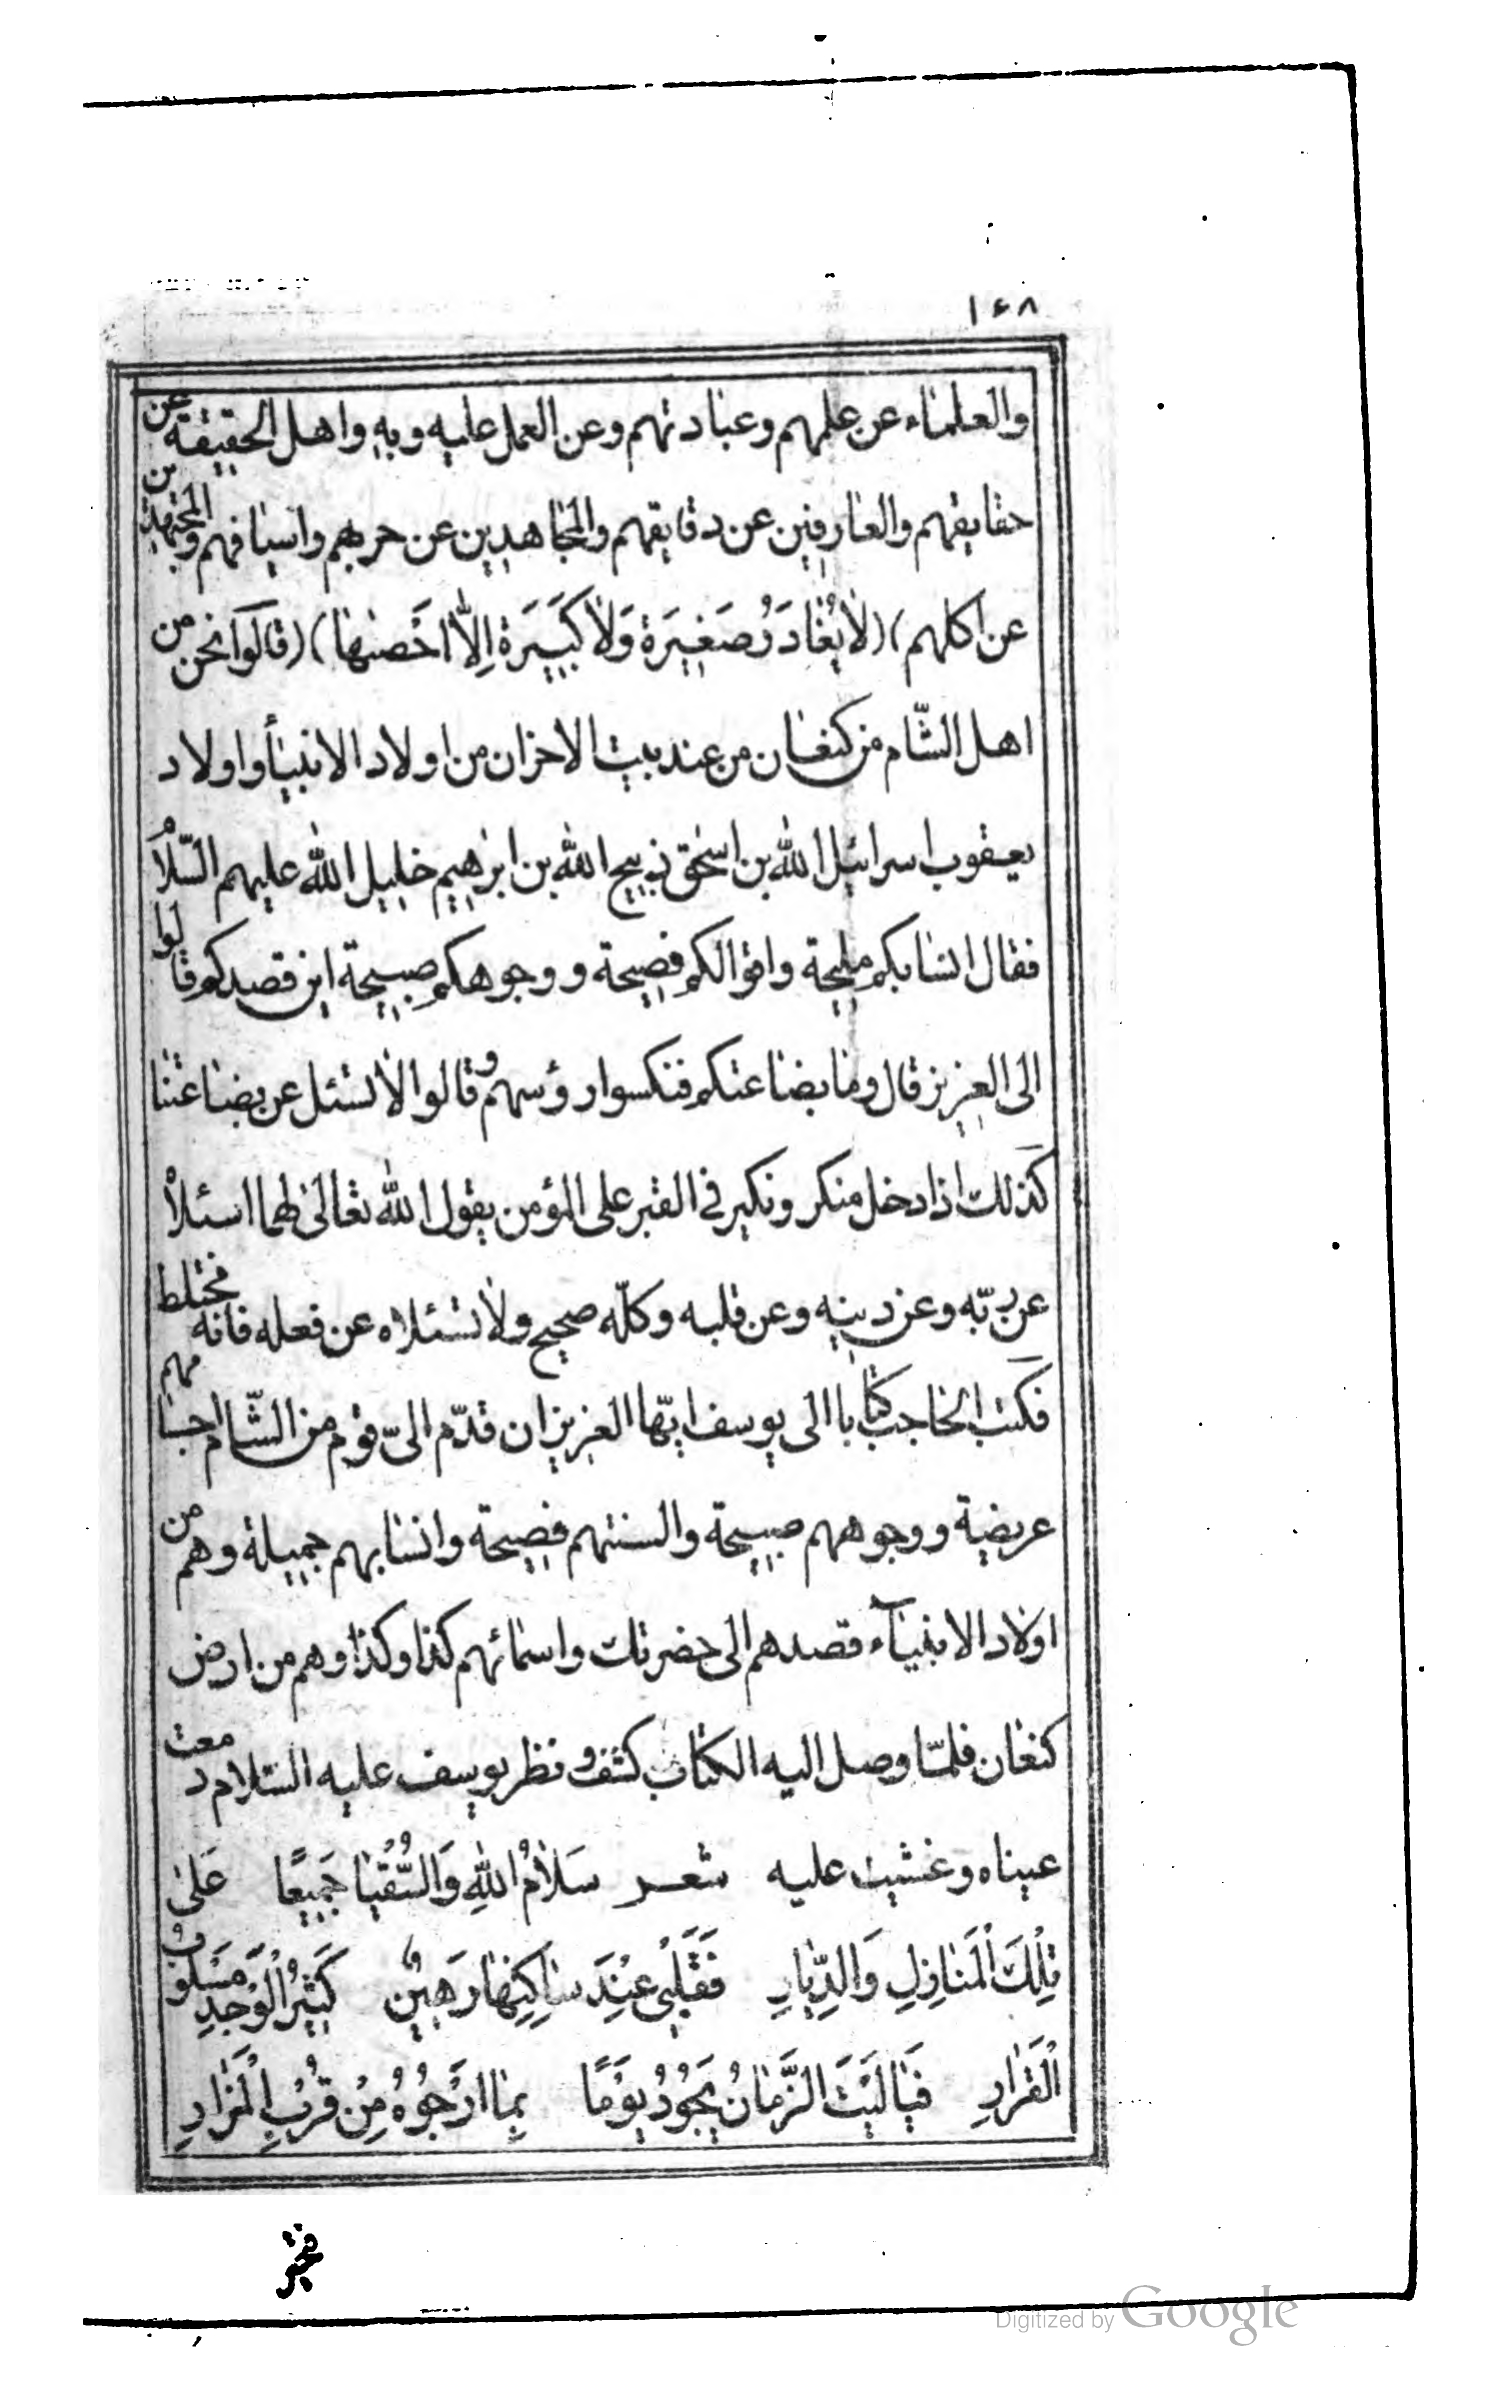 ١٤٨
والعلماء عن علمهم وعبادتهم وعن العمل عليه وبه واهل الحقيقة عن
حقايقهم والعارفين عن دقايقهم والمجاهدين عن حربهم واسيافهم والمجتهدين
عن اكلهم) (لَا يُغَادِرُ صَغِيرَة وَلَا كَبِيرَة اِلَّا اَحْصٰهَا) (قَالُوا نحن من
اهل الشّام من كنعان من عند بيت الاحزان من اولاد الانبيأ واولاد
يعقوب اسرائيل الله بن اسحق ذبيح الله بن ابرهيم خليل الله عليهم السّلام
فقال انسابكم مليحة واقوالكم فصيحة ووجوهكم صبيحة اين قصدكم قالوا
الى العزيز قال وما بضاعتكم فنكسوا رؤسهم وقالوا لا تسئل عن بضاعتنا
كذلك اذا دخل منكر ونكير في القبر على المؤمن يقول الله تعالى لهما اسئلاه
عن ربّه وعن دينه وعن قلبه وكلّه صحيح ولا تسئلاه عن فعله فانه مختلط
فكتب الحاجب كتابا الى يوسف ايّها العزيز ان قدّم الىّ قوم من الشّام اجسامهم
عريضة ووجوههم صبيحة والسنتهم فصيحة وانسابهم جميلة وهم من
اولاد الانبيآء قصدهم الى حضرتك واسمائهم كذا وكذا وهم من ارض
كنعان فلمّا وصل اليه الكتاب كشف ونظر يوسف عليه السّلام دمعت
عيناه وغشيت عليه شعر سَلَامُ اللهِ وَالسُّقْيَا جَمِيعًا عَلىٰ
تِلْكَ الْمَنَازِلِ وَالدِّيَارِ فَقَلْبِي عِنْدَ سَاكِنِهَا رَهِينٌ كَثِيرُ الْوَجْدِ مَسْلُوبُ
الْقَرَارِ فَيَا لَيْتَ الزَّمَانُ يَجُودُ يَوْمًا بِمَا اَرْجُوهُ مِنْ قُرْبِ الْمَزَارِ
Digitized by Google